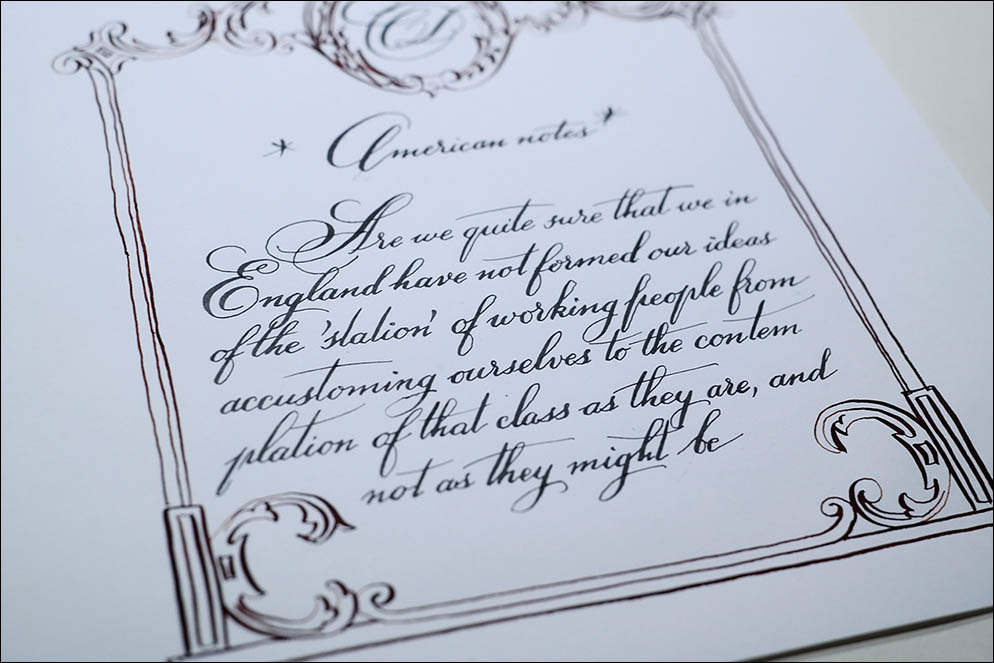 * American notes *
Are we quite sure that we in
England have not formed our ideas
of the 'station' of working people from
accustoming ourselves to the contem
plation of that class as they are, and
not as they might be